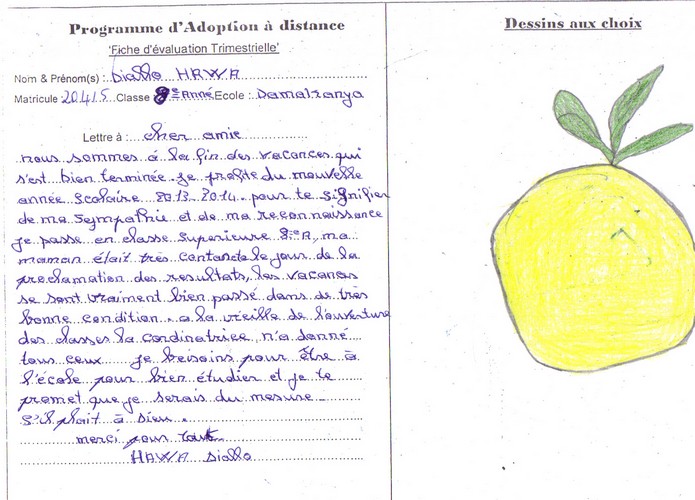 Programme d'Adoption à distance
'Fiche d'évaluation Trimestrielle'
Nom & Prénom(s) : Diallo HAWA
Matricule 20415 Classe 8e Anné Ecole : Damakanya
Lettre à : cher amie
nous sommes à la fin des vacances qui
s'est bien terminée. je profite du nouvelle
année scolaire 2013-2014 pour te signifier
de ma sympathie et de ma reconnaissance
je passe en classe superieure 8e A, ma
maman était très contante le jour de la
proclamation des resultats, les vacances
se sont vraiment bien passé dans de très
bonne condition. a la vieille de l'ouverture
des classes la cordinatrice n'a donné
tous ceux je besoins pour Être à
l'école pour bien étudier et je te
promet que je serais du mesure
s'il plait à Dieu.
merci pour tout
HAWA Diallo
Dessins aux choix